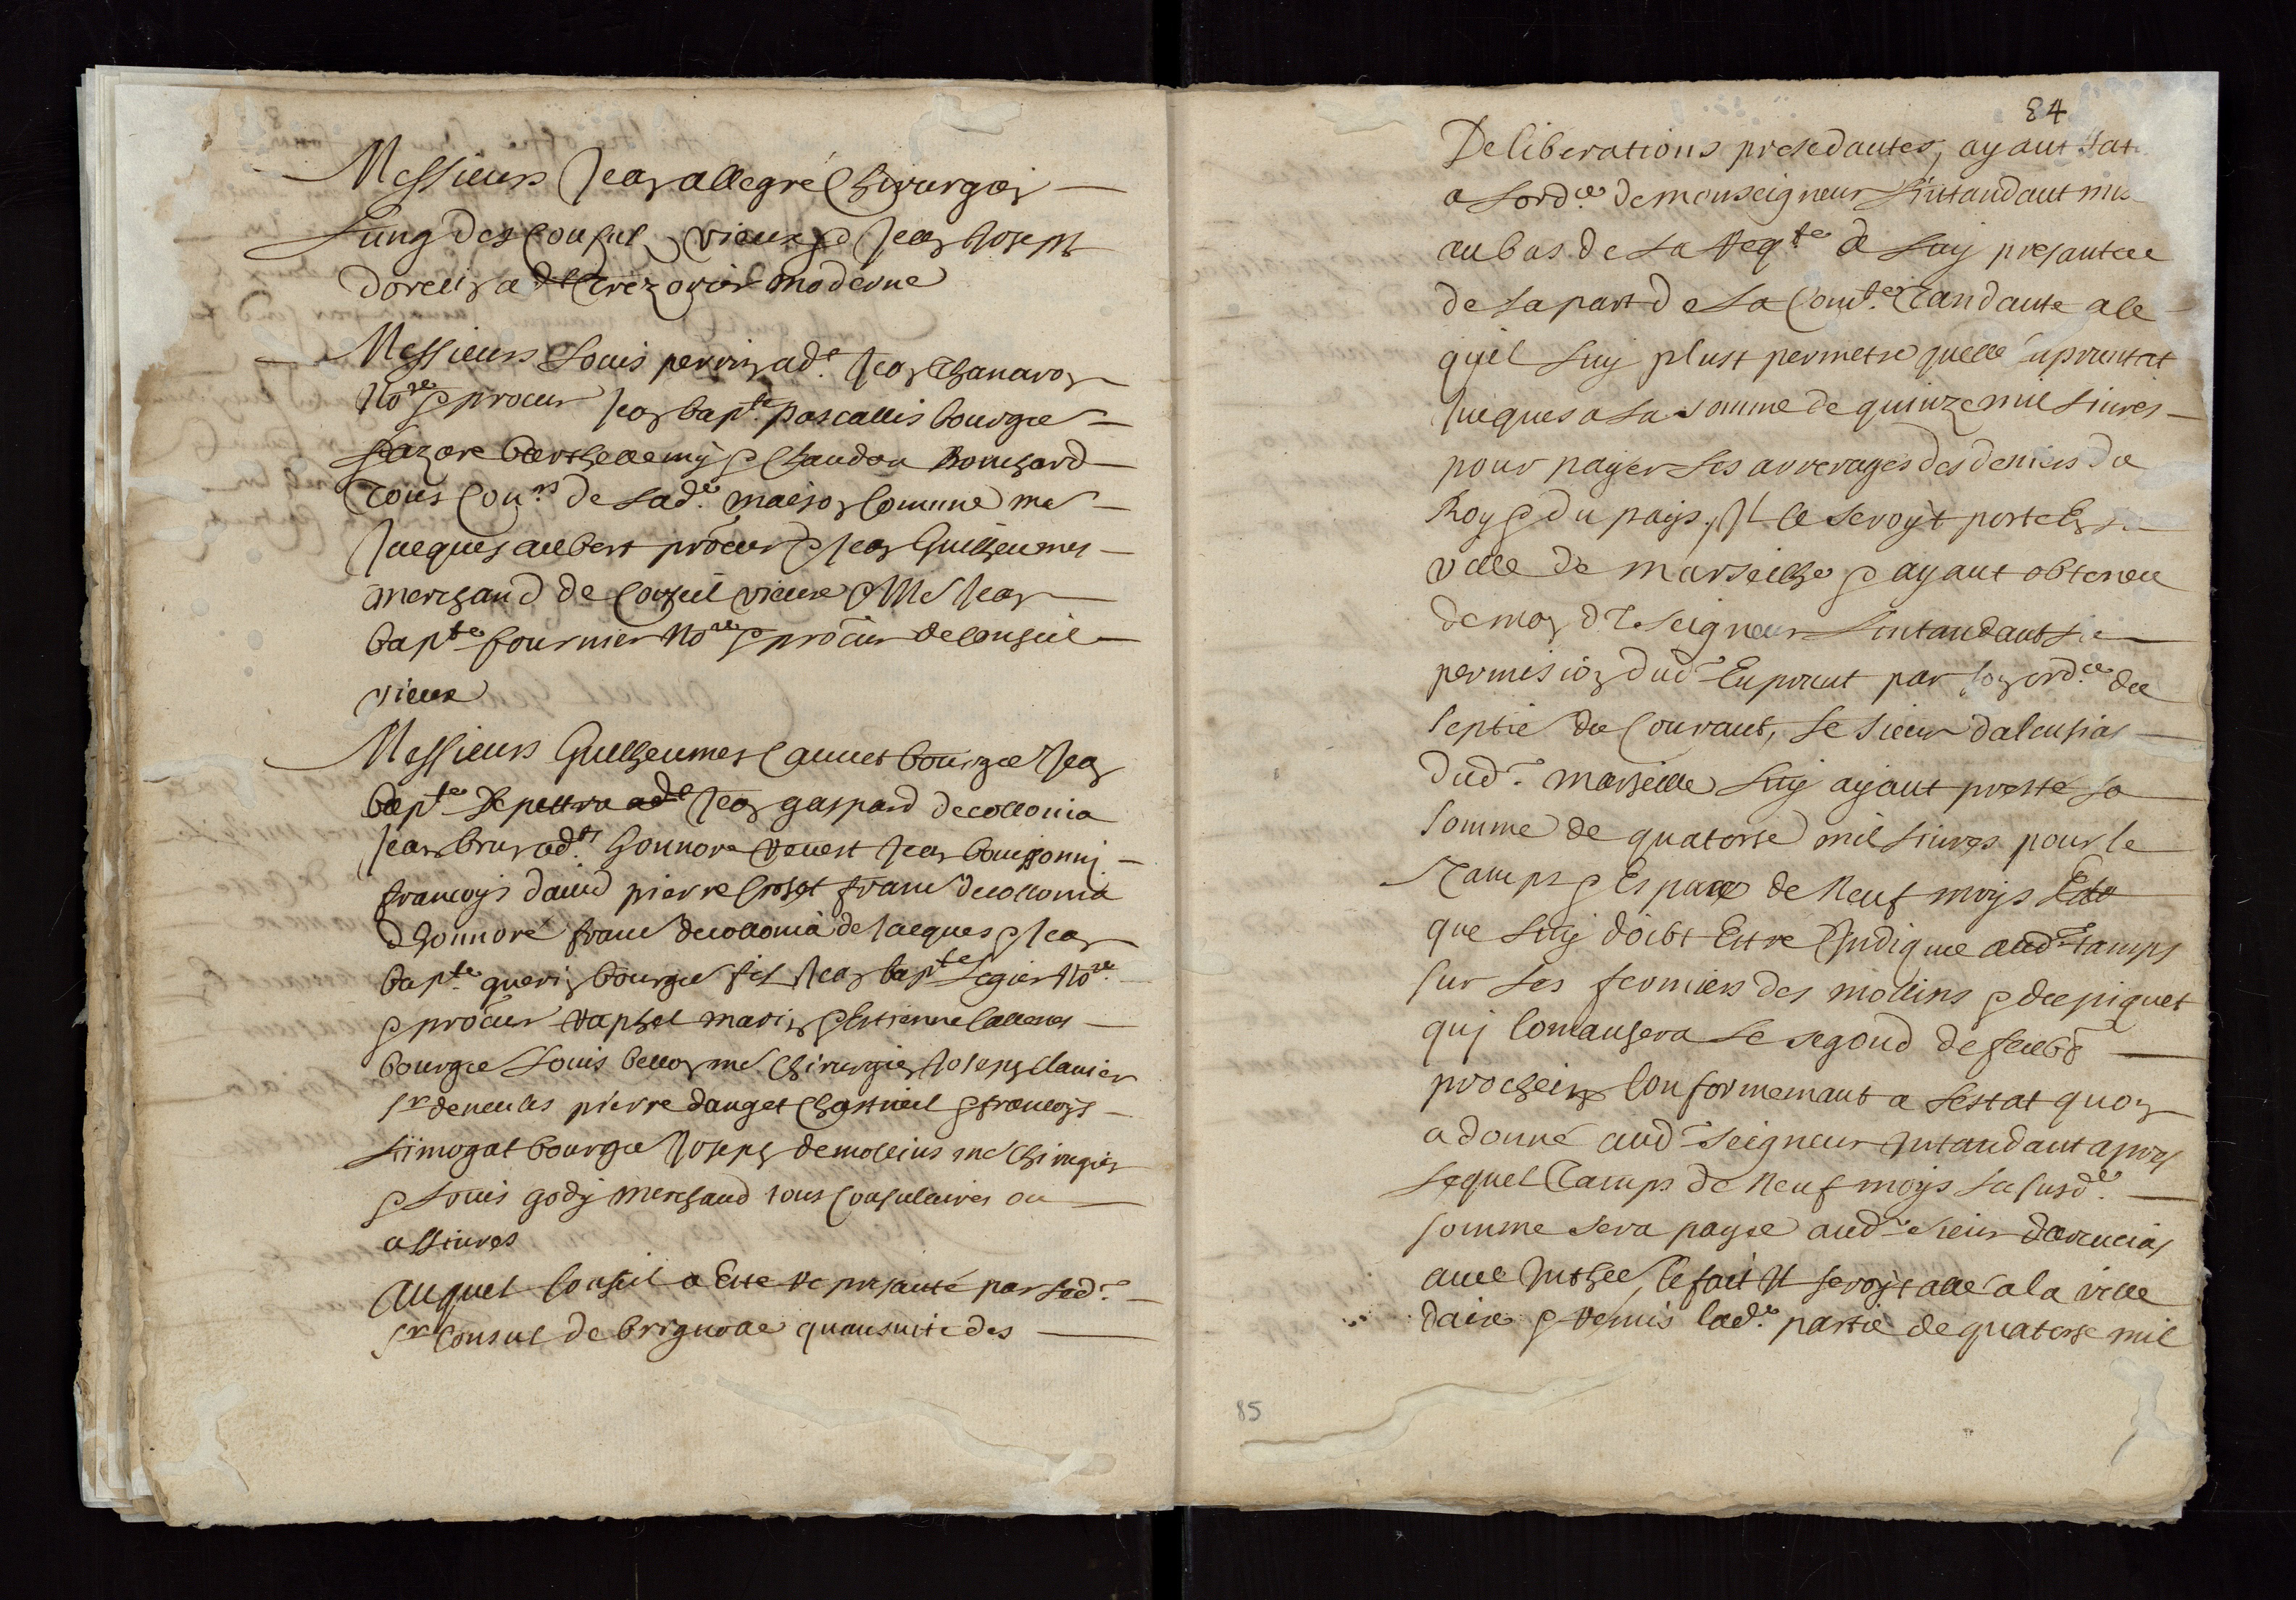 Messieurs Jean allegre Chirurgien
Lung des Consuls vieux & Jean Joseph
dorelin adt Trezorier moderne
Messieurs Louis perrin adt. Jean Chanaron
No.re & procur Jean bapt.te pascallis bourgee
Lazare barthellemy & Chaudon Bouchard
Tous Con.rs de lad.e maison Comune me
Jacques aubert procur & Jean Guilheumes
merchand de Conseil vieux & Me Jean
bap.te fournier No.re & procur de conseil
vieux
Messieurs Guilheumes Cannet bourgee Jean
bap.te Jean gaspard decollonia
Jean brun adt. honnore venest Jean
francoys david pierre Croset franc decollonia
dhonnoré franc decollonia de Jacques & Jean
bap.te querin bourgee fis Jean bap.te Legier No.re
& procur raphel marin & Estienne
bourgee Louis bellon me Chirurgien Joseph Clavier
sr de neules pierre dauget Chastueil & francoys
Limogat bourgee Joseph demollins me Chirugien
& Louis gody merchand tous Consulaires ou
allivres
Auquel Conseil a Este represanté par led.t
sr Consul de brignolle quansuite des
84
Deliberations presedantes, ayant
a Lord.ce de monseigneur Lintandant
au bas de la req.te a Luy presantee
de la part de la Com.te Tandante a ce
quil Luy plust permetre quelle Enpruntat
Juques a la somme de quinze mil Livres
pour payer Les arrerages des deniers du
Roy & du pays, Il se seroyt porte En La
ville de marseilhe & ayant obteneu
de mon d.t seigneur Lintandant La
permision dud.t Enprunt par son ord.ce du
septie du Courant, Le sieur dalensias
dud.t marseille Luy ayant presté La
somme de quatorse mil Livres pour le
Tamps & Espace de Neuf moys
que Luy doibt Estre Indiqué aud.t tamps
sur Les fermiers des mollins & du piquet
quj Comansera Le segond de feub.r
prochein Conformemant a Lestat quon
a donné aud.t seigneur Intandant apres
Lequel Tamps de Neuf moys La susd.e
somme sera payee aud.t sieur
avec Inthee, Ce fait Il seroyt alle a la ville
daix & remis lad.e partie de quatorse mil
85